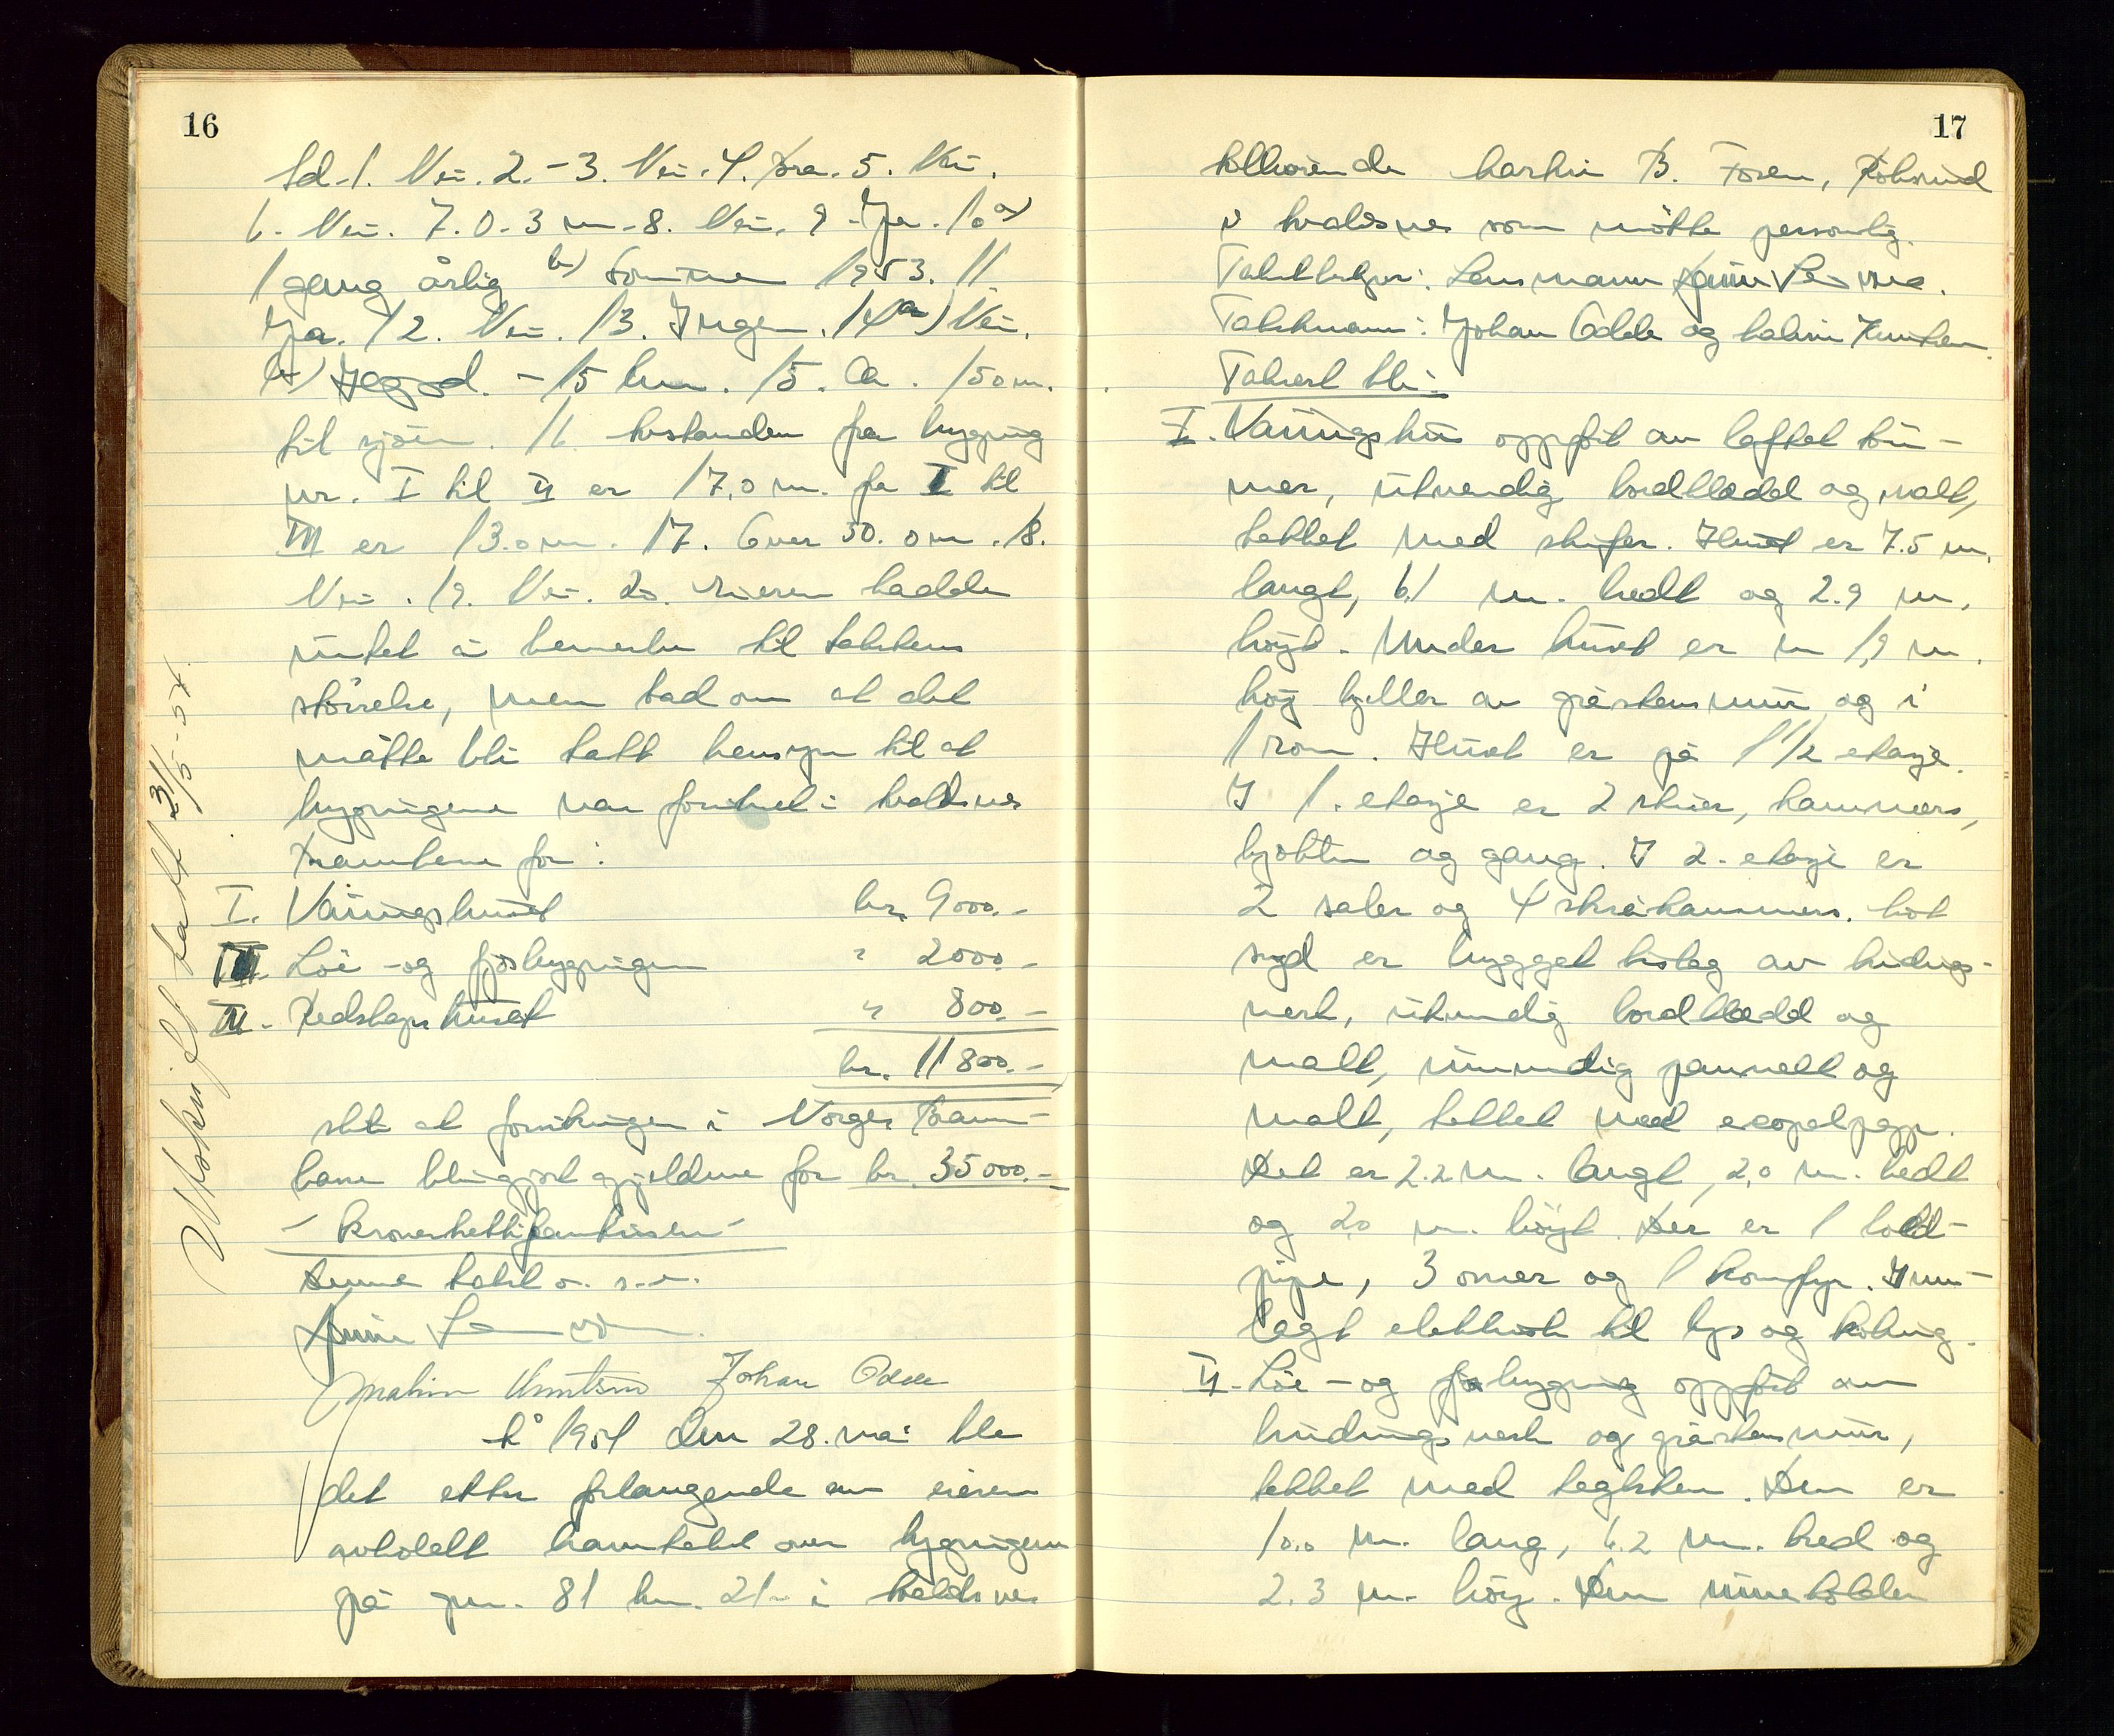 16
Sd. 1. Nei. 2. - 3. Nei. 4. Bra. 5. Nei.
6. Nei. 7. 0.3 m. 8. Nei. 9. Ja. 10 a)
1 gang årlig b) Sommeren 1953. 11.
Ja. 12. Nei. 13. Ingen. 14 a) Nei.
b) - 15 km. 15. Ca. 150 m.
til sjøen. 16. Avstanden fra bygning
nr. I til II er 17.0 m. fra I til
III er 13.0 m. 17. Over 30.0 m. 18.
Nei. 19. Nei. 20. Eieren hadde
intet å bemerke til takstens
størrelse, men bad om at det
måtte bli tatt hensyn til at
bygningene var forsikret i
Branntakst for:
I. Våningshuset kr. 9000.-
II. Løe- og fjøsbygningen " 2000.-
III. Redskapshuset " 800.-
kr. 11800.-
slik at forsikringen i Norges Brann-
kasse blir gjort gjeldende for kr. 35000.-
- tusen -
Denne takst o. s. v.
Malvin Knutsen Johan Odde
År 1954 den 28. mai ble
det etter forlangende av eieren
avholdt branntakst over bygningene
på gnr. 81 bnr. 21 i
Utskrift tatt 31/5-54.
17
tilhørende B. Fosen, Røksund
i som møtte personlig.
Takstbestyrer: Lensmann
Takstmenn: Johan Odde og Malvin Knutsen.
Taksert ble:
I. Våningshus oppført av laftet tøm-
mer, utvendig bordkledd og malt,
tekket med skifer. Huset er 7.5 m.
langt, 6.1 m. bredt og 2.9 m.
høyt. Under huset er en 1,9 m.
høy kjeller av gråstensmur og i
1 rom. Huset er på 1 1/2 etasje.
I 1. etasje er 2 stuer, kammers,
kjøkken og gang. I 2. etasje er
2 saler og 4 skråkammers. Mot
syd er bygget bislag av bindings-
verk, utvendig bordkledd og
malt, innvendig pannelt og
malt, tekket med
Det er 2.2 m. langt, 2,0 m. bredt
og 2,0 m. høyt. Der er 1 -
pipe, 3 ovner og 1 komfyr. Inn-
lagt elektrisk til lys og koking.
II. Løe- og fjøsbygning oppført av
bindingsverk og gråstensmur,
tekket med teglsten. Den er
10.0 m. lang, 6.2 m. bred og
2.3 m. høy. Den inneholder